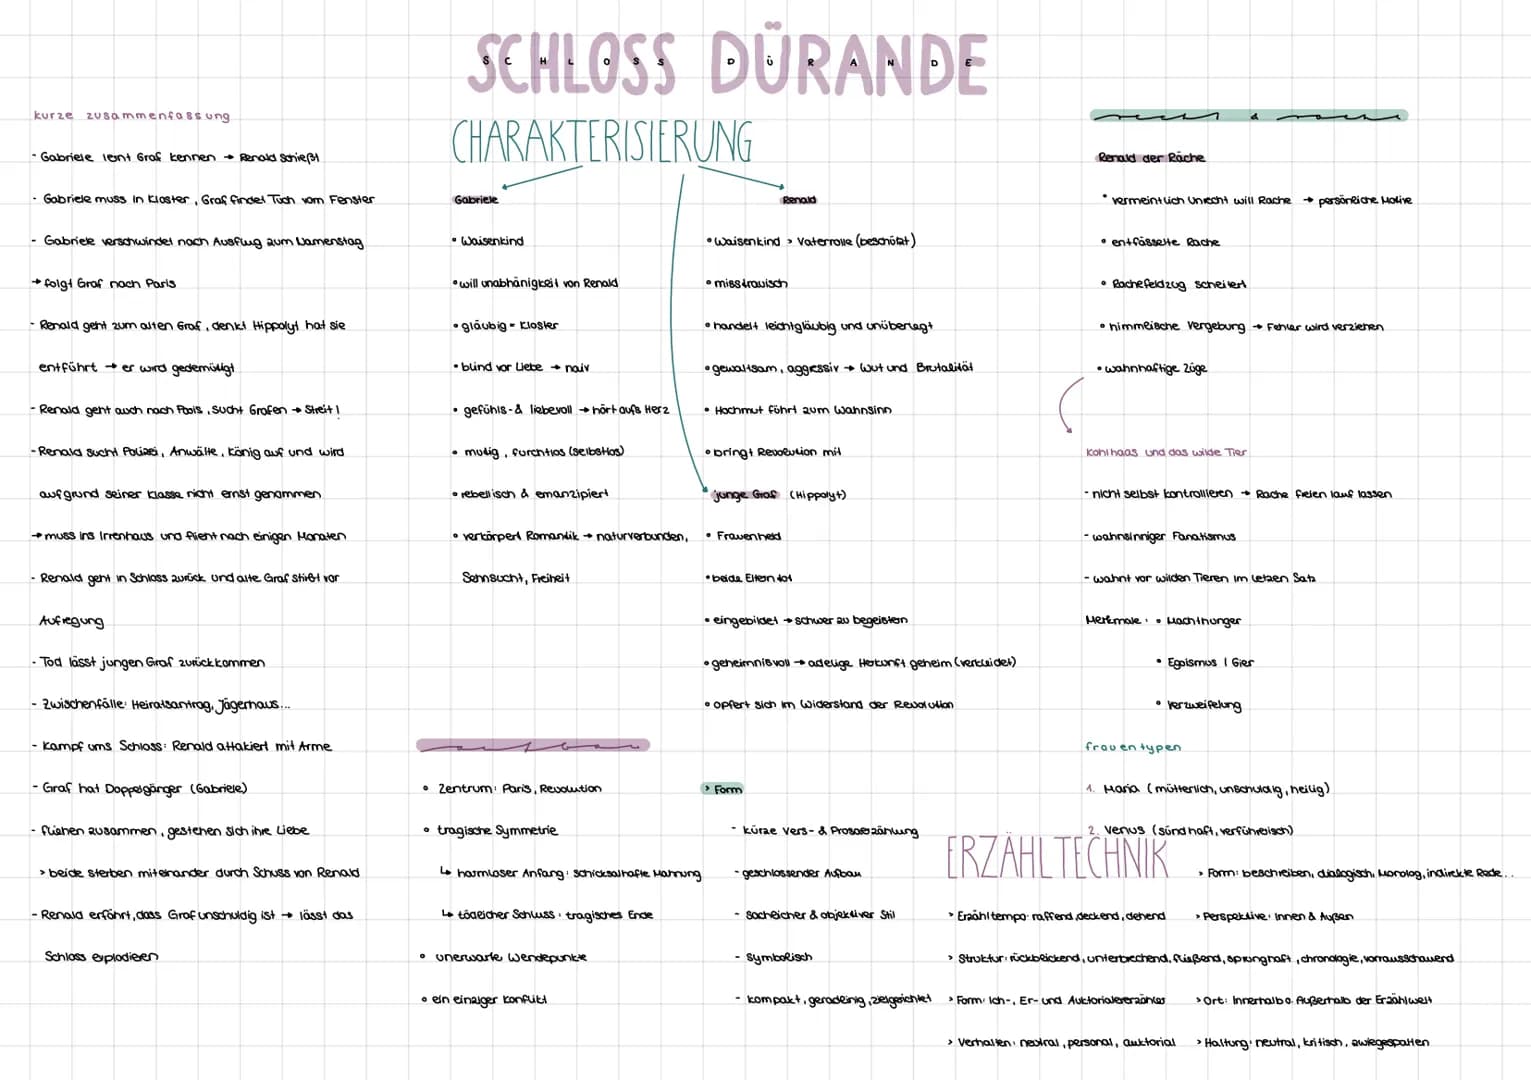 SCHLOSS DÜRANDE
SCHLOSS DÜRANDE
kurze zusammenfassung
- Gabriele lernt Graf kennen → Renald schießt
- Gabriele muss in Kloster, Graf findet Tuch vom Fenster
- Gabriele verschwindet nach Ausflug zum Namenstag
→ folgt Graf nach Paris
- Renald geht zum alten Graf, denkt Hippolyt hat sie
entführt → er wird gedemütigt
- Renald geht auch nach Paris, sucht Grafen → Streit!
- Renald sucht Polizei, Anwälte, König auf und wird
aufgrund seiner Klasse nicht ernst genommen
→ muss ins Irrenhaus und flieht nach einigen Monaten
- Renald geht in Schloss zurück und alte Graf stirbt vor
Aufregung
- Tod lässt jungen Graf zurückkommen
- Zwischenfälle: Heiratsantrag, Jägerhaus...
- Kampf ums Schloss: Renald attakiert mit Arme
- Graf hat Doppelgänger (Gabriele)
- fliehen zusammen, gestehen sich ihre Liebe
> beide sterben miteinander durch Schuss von Renald
- Renald erfährt, dass Graf unschuldig ist → lässt das
Schloss explodieren
CHARAKTERISIERUNG
Gabriele
• Waisenkind
• will unabhänigkeit von Renald
• gläubig - Kloster
• blind vor Liebe → naiv
• gefühls- & liebevoll → hört aufs Herz
• mutig, furchtlos (selbstlos)
• rebellisch & emanzipiert
• verkörpert Romantik → naturverbunden,
Sehnsucht, Freiheit
Renald
• Waisenkind > Vaterrolle (beschützt)
• misstrauisch
• handelt leichtgläubig und unüberlegt
• gewaltsam, aggressiv → Wut und Brutalität
• Hochmut führt zum Wahnsinn
• bringt Revolution mit
junge Graf (Hippolyt)
• Frauenheld
• beide Eltern tot
• eingebildet → schwer zu begeistern
• geheimnisvoll → adelige Herkunft geheim (verkleidet)
• opfert sich im Widerstand der Revolution
aufbau
• Zentrum: Paris, Revolution
• tragische Symmetrie
↳ harmloser Anfang: schicksalhafte Mahnung
↳ tödlicher Schluss: tragisches Ende
• unerwarte Wendepunkte
• ein einziger Konflikt
> Form
- kürze Vers- & Prosaerzählung
- geschlossender Aufbau
- sachlicher & objektiver Stil
- symbolisch
- kompakt, geradelinig, zielgerichtet
Renald der Räche
• vermeintlich Unrecht will Rache → persönliche Motive
• entfässelte Rache
• Rachefeldzug scheitert
• himmlische Vergebung → Fehler wird verziehen
• wahnhaftige Züge
Kohlhaas und das wilde Tier
- nicht selbst kontrollieren → Rache freien lauf lassen
- wahnsinniger Fanatismus
- wahnt vor wilden Tieren im letzen Satz
Merkmale: • Machthunger
• Egoismus / Gier
• Verzweifelung
frauentypen
1. Maria (mütterlich, unschuldig, heilig)
2. Venus (sündhaft, verführeisch)
ERZÄHLTECHNIK
> Form: beschreiben, dialogisch, Monolog, indirekte Rede...
> Erzähltempo: raffend, deckend, dehend
> Perspektive: Innen & Außen
> Struktur: rückblickend, unterbrechend, fließend, sprunghaft, chronologie, vorrausschauend
> Form: Ich-, Er- und Auktorialererzähler
> Ort: Innerhalb o. Außerhalb der Erzählwelt
> Verhalten: neutral, personal, auktorial
> Haltung: neutral, kritisch, zwiegespalten